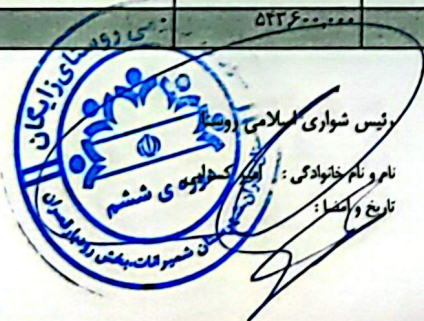 ۵۴۳,۶۰۰,۰۰۰
رئیس شورای اسلامی روستا
نام و نام خانوادگی :
تاریخ و امضا :
روستای زایگان
دوره ی ششم
شمیرانات، بخش رودبار قصران